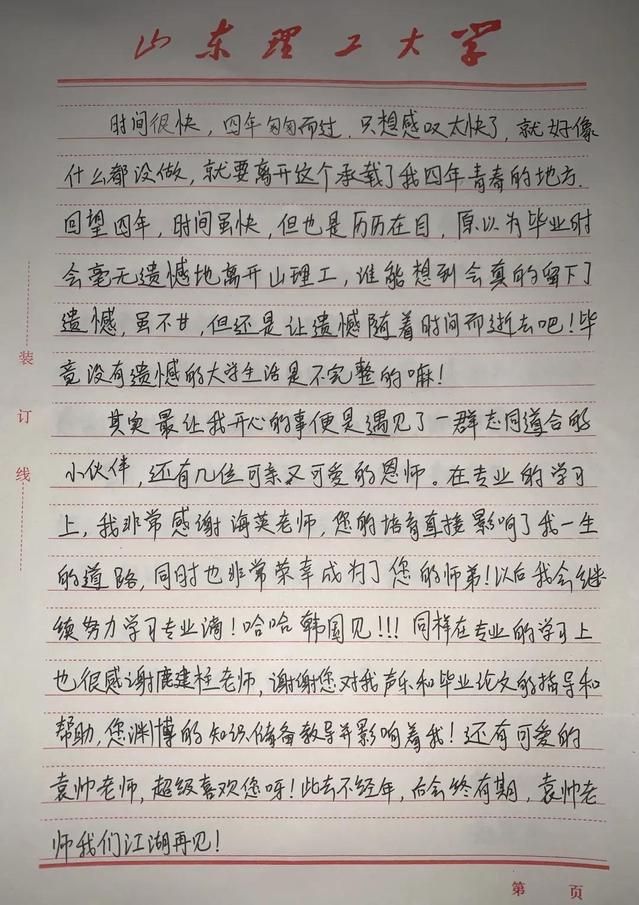 山东理工大学
时间很快，四年匆匆而过，只想感叹太快了，就好像
什么都没做，就要离开这个承载了我四年青春的地方.
回望四年，时间虽快，但也是历历在目，原以为毕业时
会毫无遗憾地离开山理工，谁能想到会真的留下了
遗憾，虽不甘，但还是让遗憾随着时间而逝去吧！毕
竟没有遗憾的大学生活是不完整的嘛！
其实最让我开心的事便是遇见了一群志同道合的
小伙伴，还有几位可亲又可爱的恩师。在专业的学习
上，我非常感谢海英老师，您的培育直接影响了我一生
的道路，同时也非常荣幸成为了您的师弟！以后我会继
续努力学习专业滴！哈哈韩国见！！！同样在专业的学习上
也很感谢鹿建柱老师，谢谢您对我声乐和毕业论文的指导和
帮助，您渊博的知识储备教导并影响着我！还有可爱的
袁帅老师，超级喜欢您呀！此去不经年，后会终有期，袁帅老
师我们江湖再见！
装
订
线
第 页